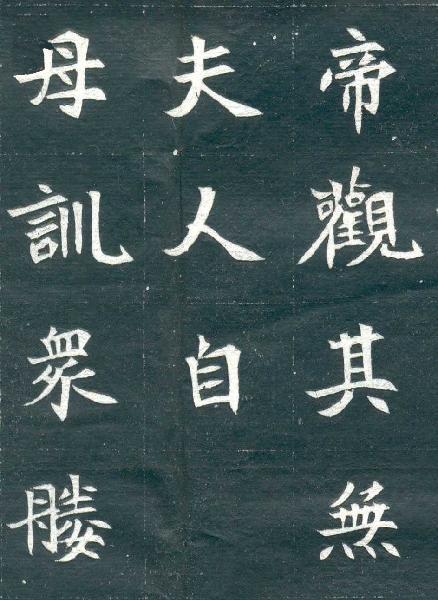 帝觀其無
夫人自
母訓眾媵